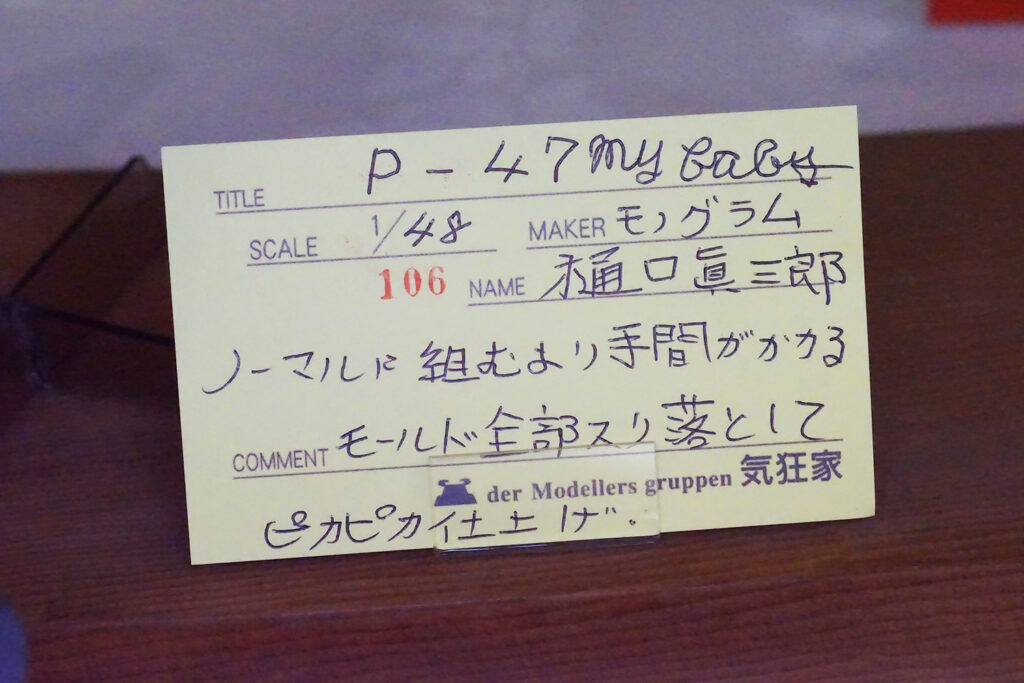 TITLE P-47 My baby
SCALE 1/48 MAKER モノグラム
106 NAME 樋口眞三郎
ノーマルに組むより手間がかかる
COMMENT モールド全部スリ落として
der Modellers gruppen 気狂家
ピカピカ仕上げ.